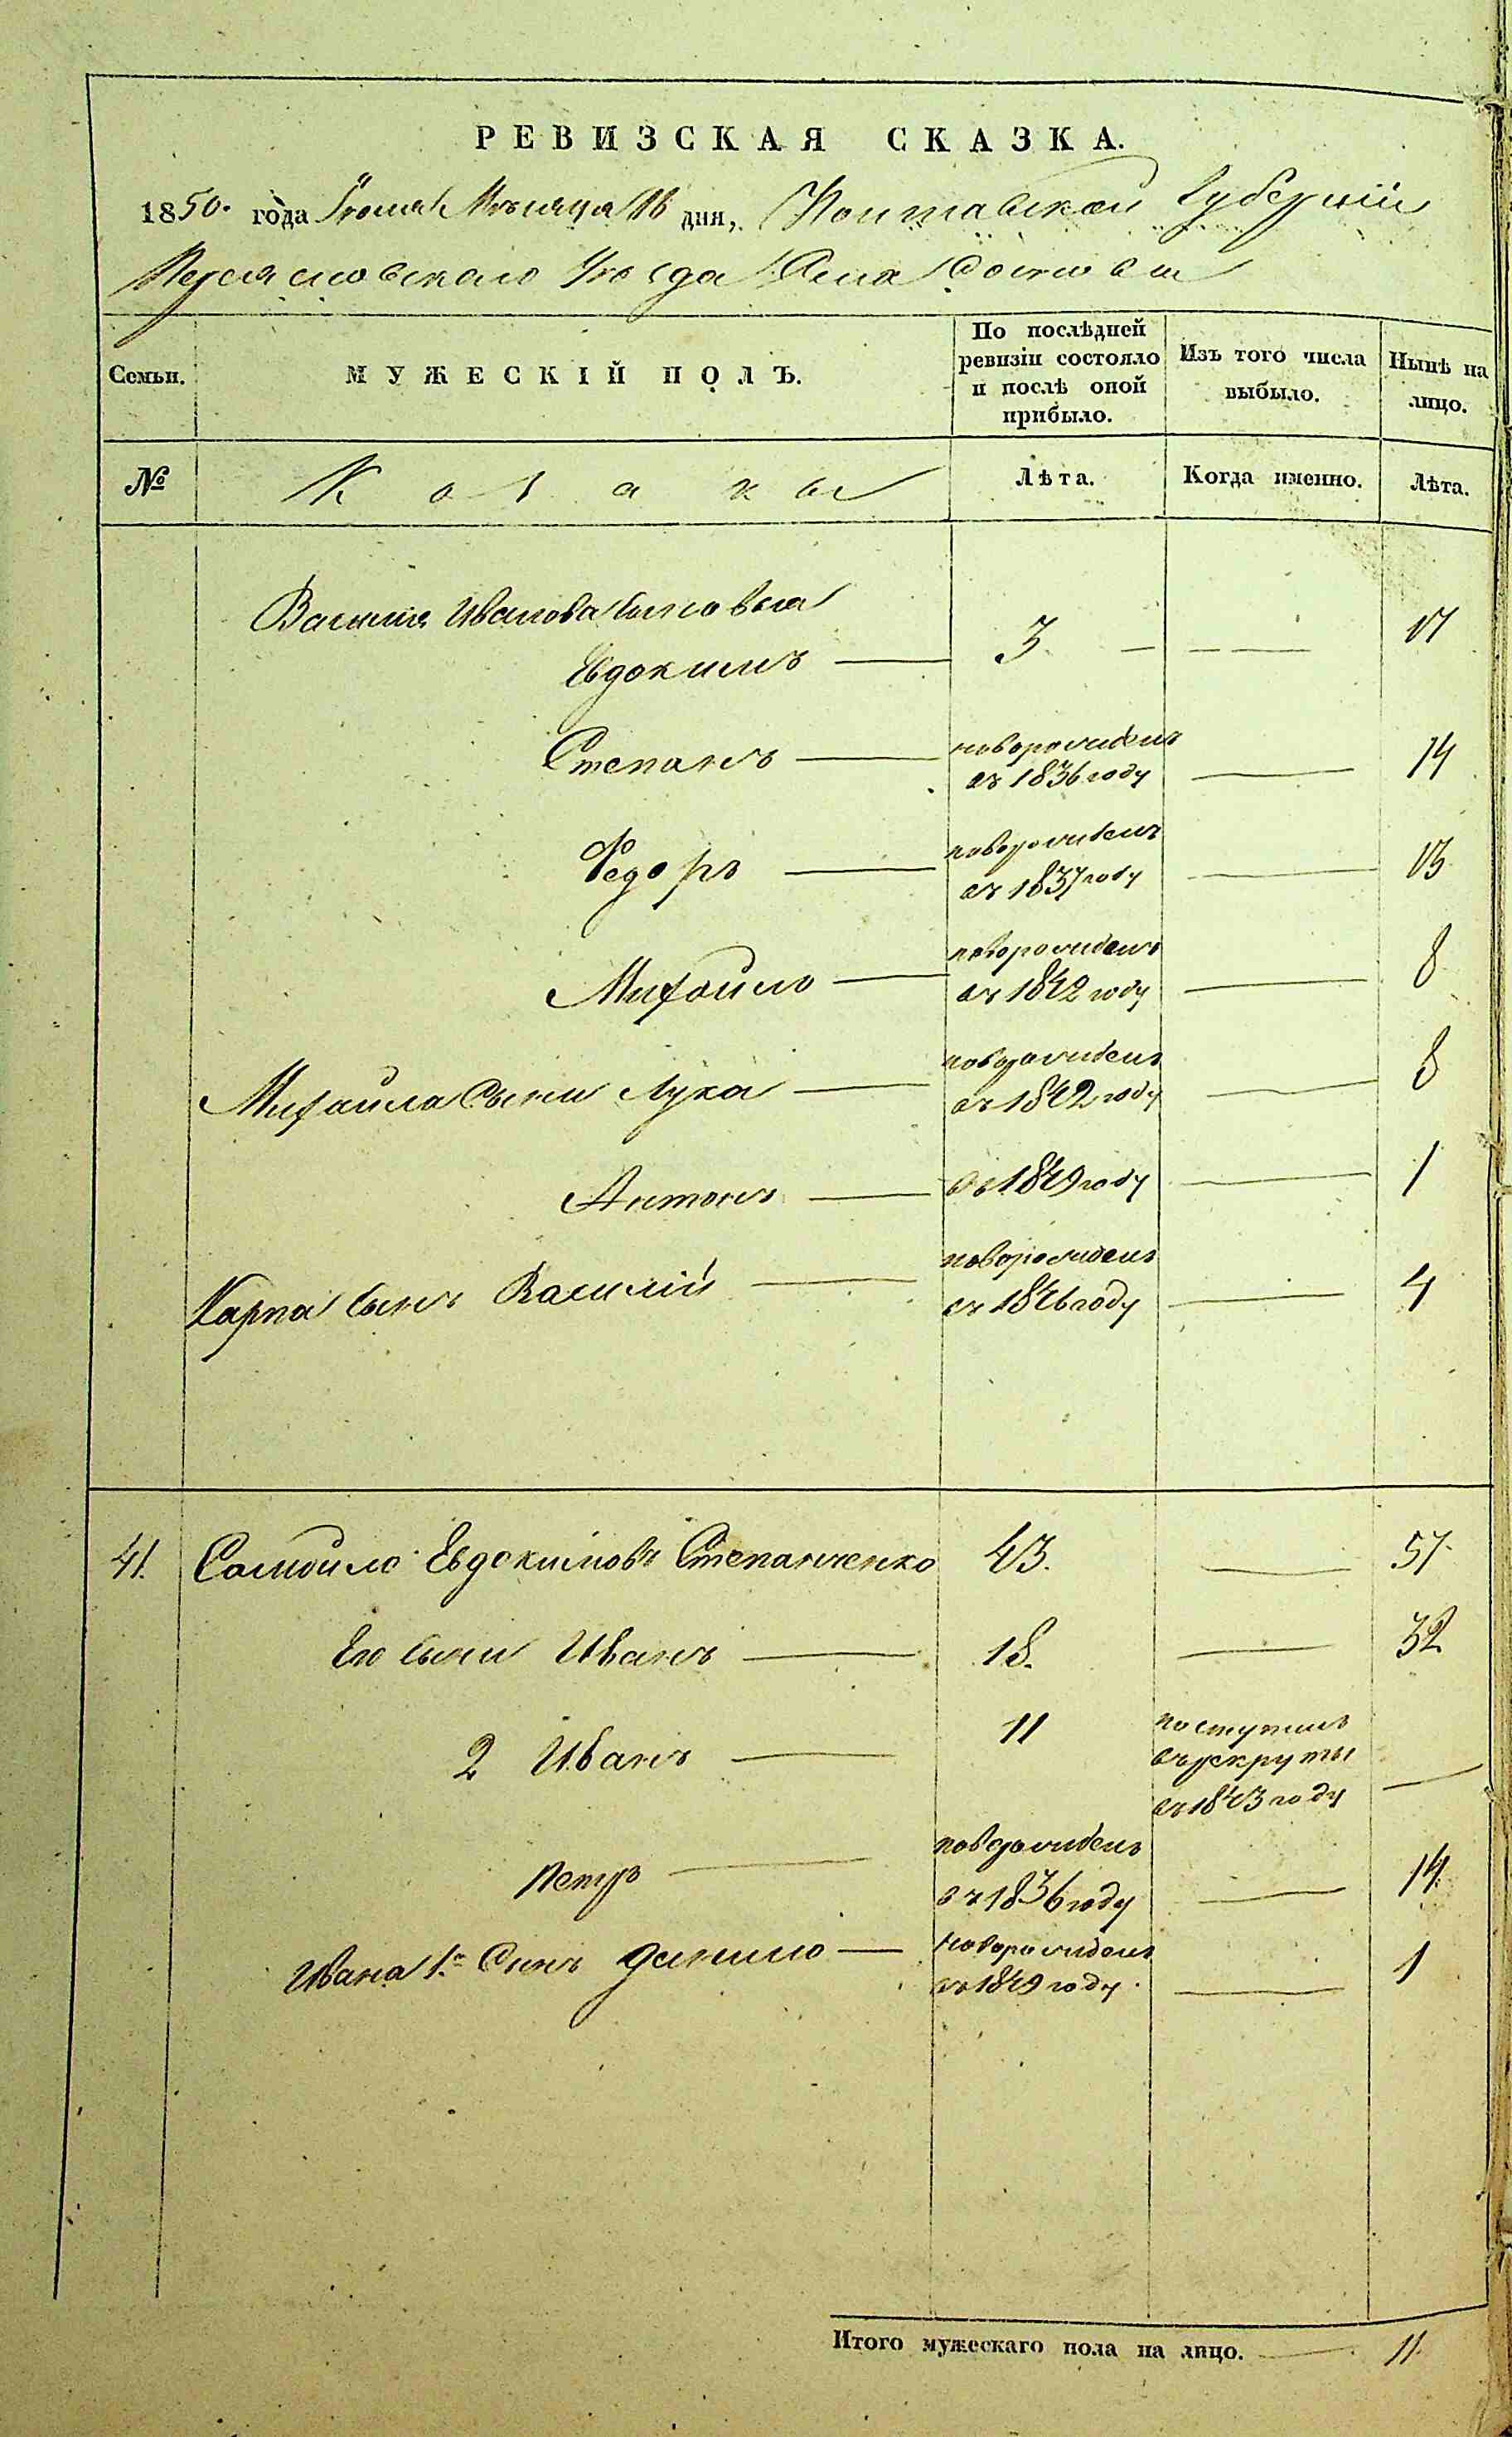 РЕВИЗСКАЯ СКАЗКА.
1850. года Июня Мѣсяца 16 дня, Полтавской Губерніи
Переяславскаго Уѣзда Села
Семьи.
МУЖЕСКІЙ ПОЛЪ.
По послѣдней
ревизіи состояло
и послѣ оной
прибыло.
Изъ того числа
выбыло.
Нынѣ на
лицо.
№
Козаки
Лѣта.
Когда именно.
Лѣта.
Василия Иванова сыновья
Евдокимъ 3 17
Степанъ новорожденъ
въ 1836 году 14
Федоръ новорожденъ
въ 1837 году 13
Михайло новорожденъ
въ 1842 году 8
Михайла сыни Лука новорожденъ
въ 1842 году 8
Антонъ въ 1849 году 1
Карпа сынъ Василій новорожденъ
въ 1846 году 4
41. Самойло Евдокимовъ Степанченко 43. 57.
Его сыни Иванъ 18. 32
2 Иванъ 11 поступилъ
въ рекруты
въ 1843 году
Петръ новорожденъ
въ 1836 году 14
Ивана 1го Сынъ Данило новорожденъ
въ 1849 году. 1
Итого мужескаго пола на лицо. 11.